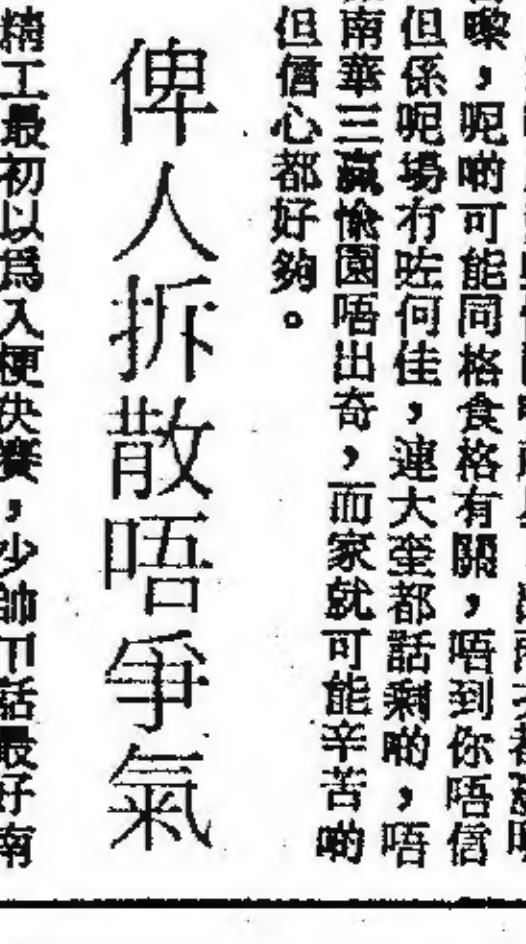 嚟，呢啲可能同格食格有關，唔到你唔信
但係呢場冇咗何佳，連大奎都話剩啲，唔
南華三贏愉園唔出奇，而家就可能辛苦啲
但信心都好夠。
俾人拆散唔爭氣
精工最初以爲入梗決賽，少帥話最好南